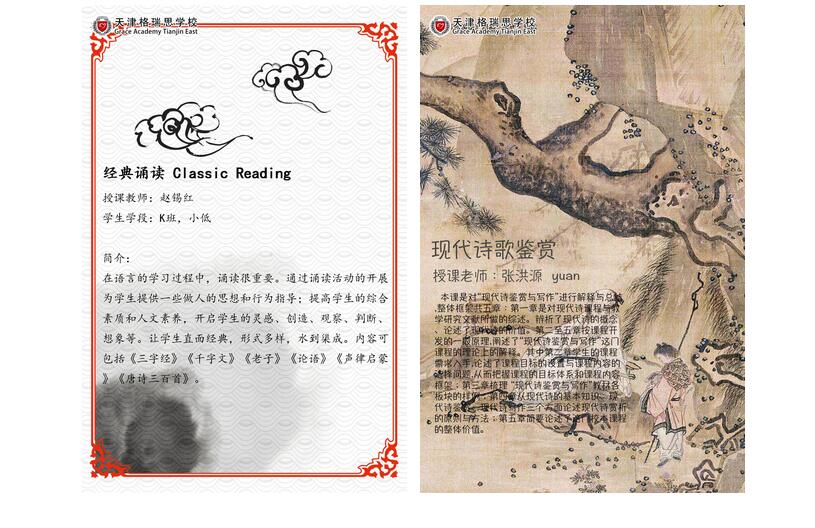 天津格瑞思学校
Grace Academy Tianjin East
经典诵读 Classic Reading
授课教师：赵锡红
学生学段：K班，小低
简介：
在语言的学习过程中，诵读很重要。通过诵读活动的开展
为学生提供一些做人的思想和行为指导；提高学生的综合
素质和人文素养，开启学生的灵感、创造、观察、判断、
想象等。让学生直面经典，形式多样，水到渠成。内容可
包括《三字经》《千字文》《老子》《论语》《声律启蒙
》《唐诗三百首》。
天津格瑞思学校
Grace Academy Tianjin East
现代诗歌鉴赏
授课老师：张洪源 yuan
本课是对“现代诗鉴赏与写作”进行解释与总
整体框架共五章：第一章是对现代诗课程与教
学研究文献所做的综述。辨析了现代诗的概念
、论述了现代诗的价值。第二至五章按课程开
发的一般原理,阐述了“现代诗鉴赏与写作”这门
课程的理论上的解释。其中第二章学生的课程
需求入手,论述了课程目标的设置与课程内容的
选择问题,从而把握课程的目标体系和课程内容
框架；第三章梳理“现代诗鉴赏与写作”教材各
板块的样例；第四章从现代诗的基本知识、现
代诗鉴赏、现代诗写作三个方面论述现代诗赏析
的原则与方法；第五章简要论述了这门校本课程
的整体价值。